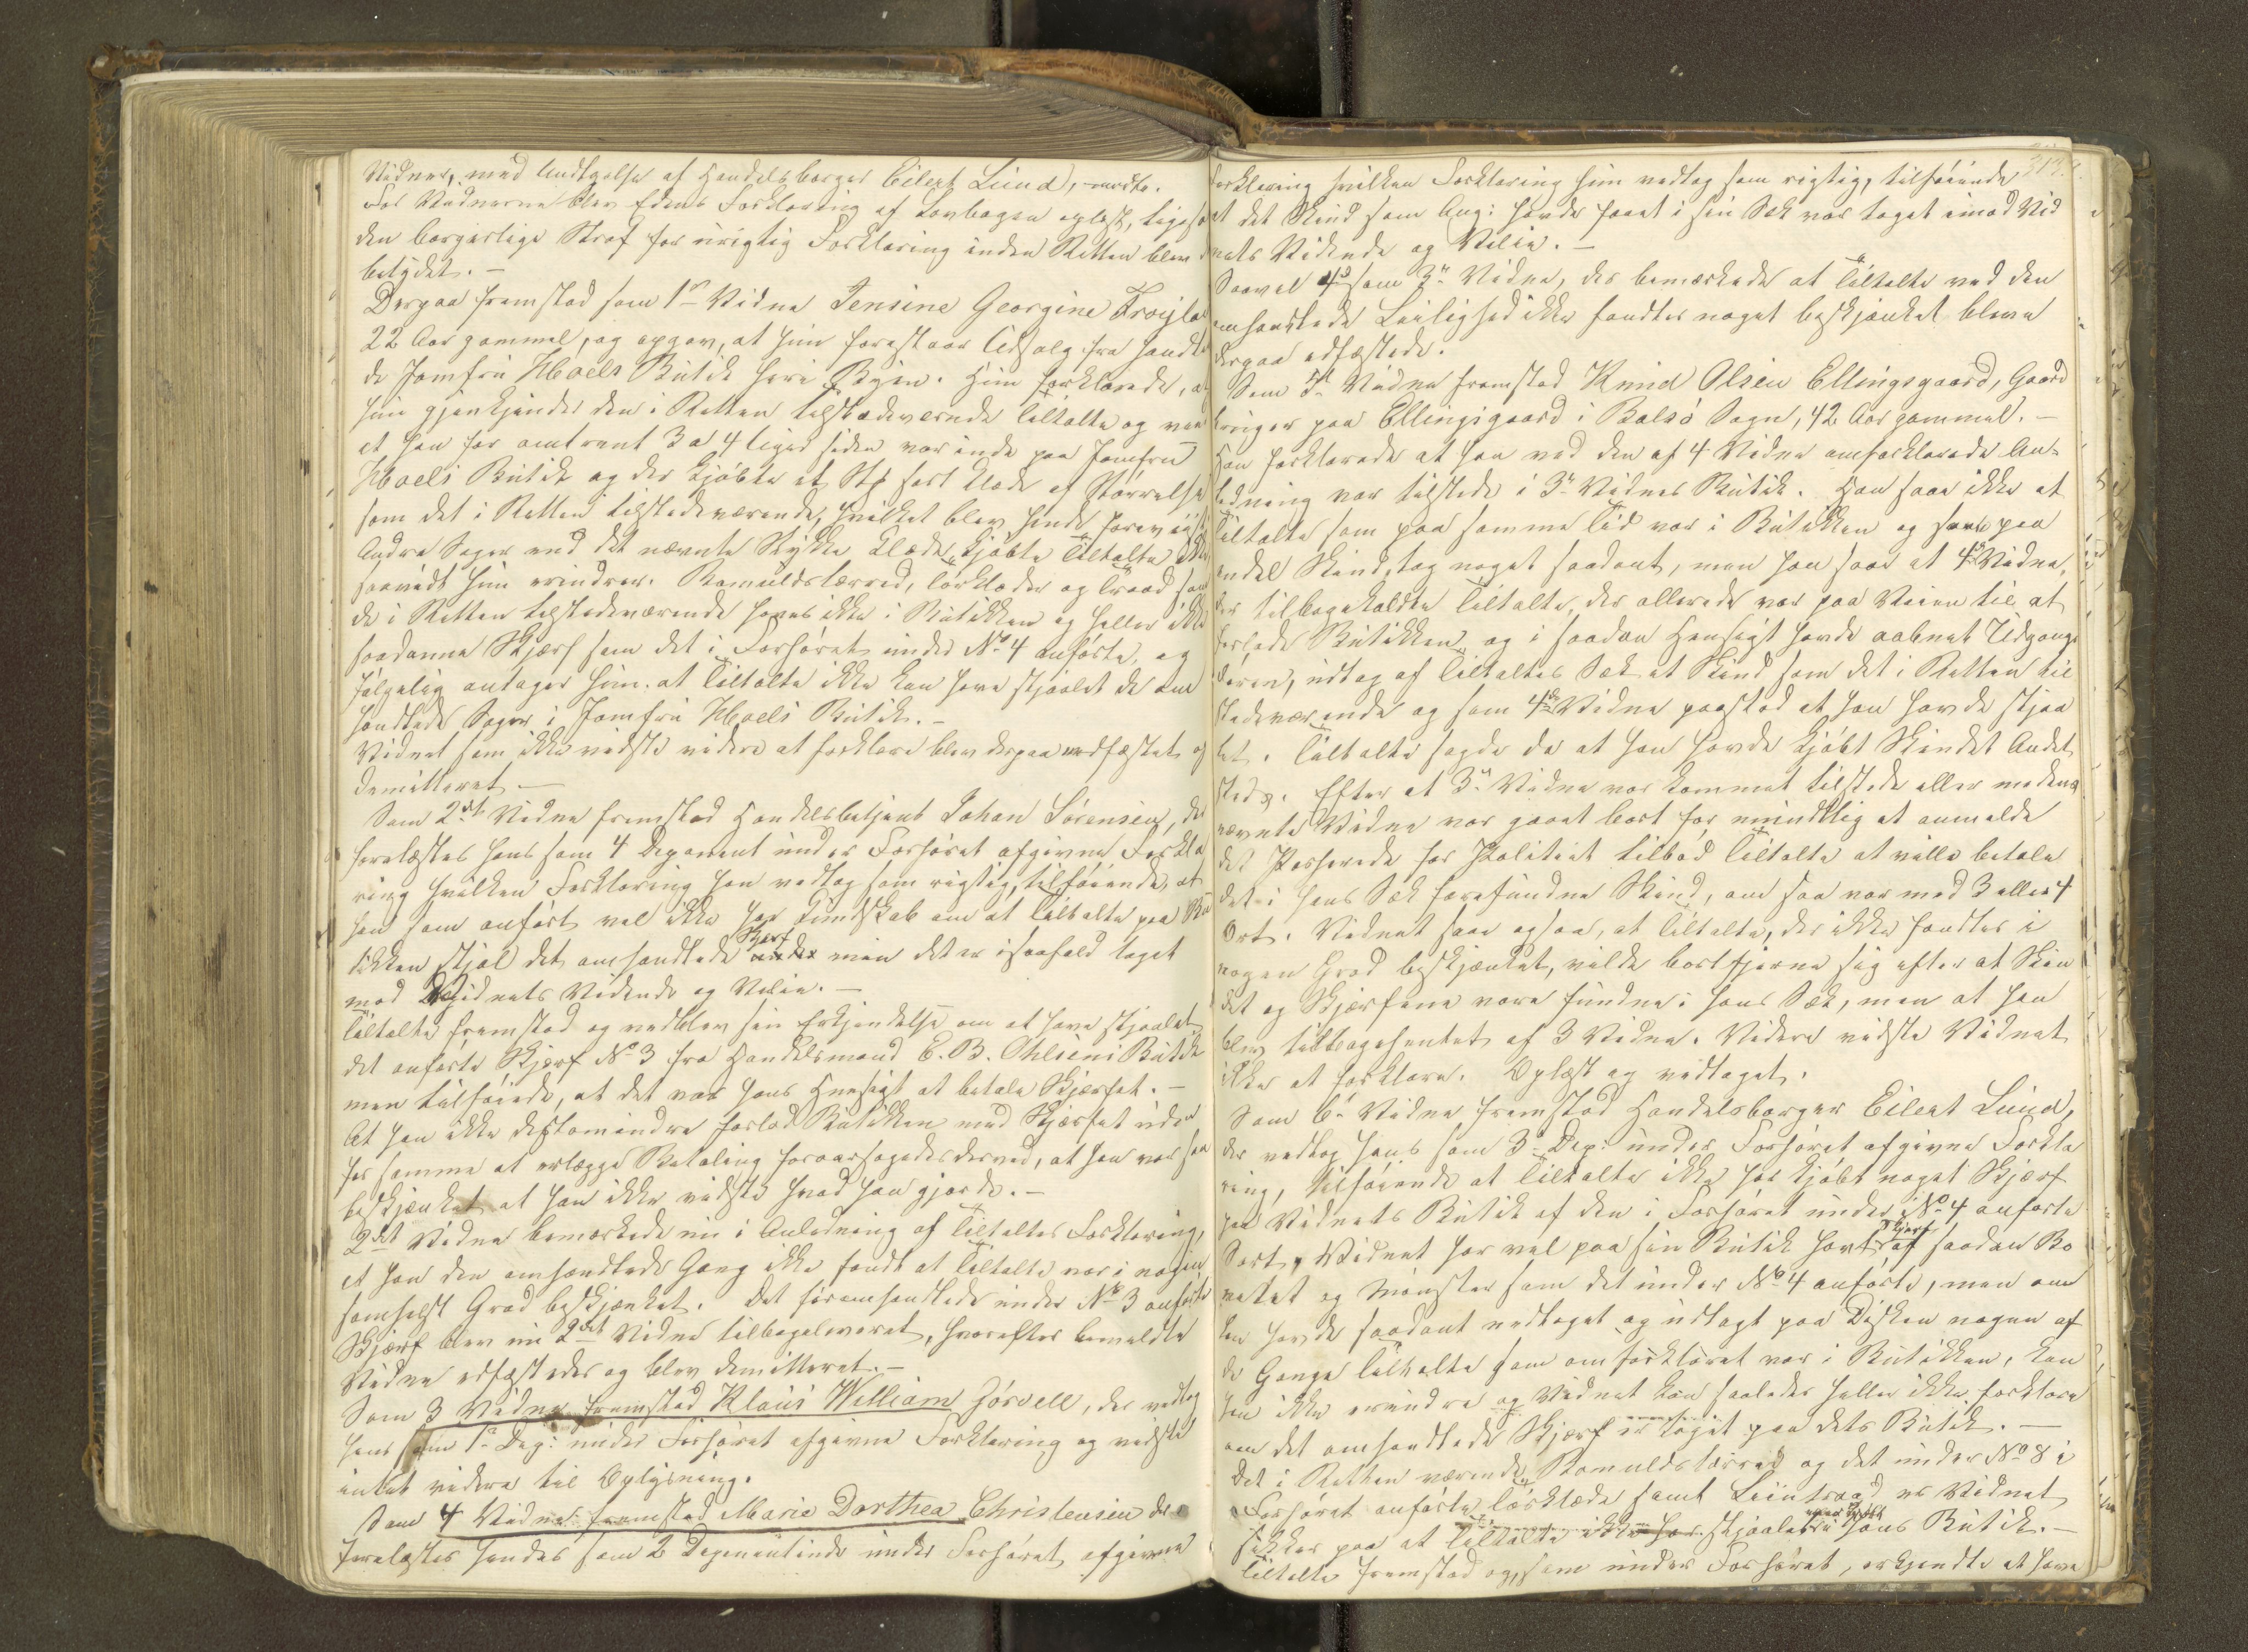 Vidner, med Undtagelse af Handelsborger Eilert Lund, mødte.
For Vidnerne blev Edens Forklaring af Lovbogen oplæst, ligesom
den borgerlige Straf for urigtig Forklaring inden Retten blev
betydet. –
Derpaa fremstod som 1ste Vidne Jensine Georgine
22 Aar gammel, og opgav, at hun forestaar Udsalg fra
de Jomfru Hoels Butik her i Byen. Hun forklarede, at
hun gjenkjender den i Retten tilstedeværende Tiltalte og
at han for omtrent 3 a 4 Uger siden var inde paa Jomfru
Hoels Butik og der kjøbte et St sort Klæde af Størrelse
som det i Retten tilstedeværende, hvilket blev hende foreviist
Andre Sager end det nævnte Stykke Klæde kjøbte Tiltalte ikke
saavidt hun erindrer. Bomuldslærred, Tørklæder og Traad som
de i Retten tilstedeværende haves ikke i Butikken og heller ikke
saadanne Skjærf som det i Forhøret under No 4 anførte, og
følgelig antager hun at Tiltalte ikke kan have stjaalet de om
handlede Sager i Jomfru Hoels Butik. –
Vidnet som ikke vidste videre at forklare blev derpaa edfæstet og
demitteret. –
Som 2det Vidne fremstod Handelsbetjent Johan Sørensen, der
forelæstes hans som 4 Deponent under Forhøret afgivne Forkla
ring hvilken Forklaring han vedtog som rigtig, tilføiende, at
han som anført vel ikke har Kundskab om at Tiltalte paa Bu
tikken stjal det omhandlede Skjærf men det er isaafald taget
mod Vidnets Vidende og Vilie. –
Tiltalte fremstod og vedblev sin Erkjendelse om at have stjaalet
det anførte Skjærf No 3 fra Handelsmand E. B. Ohlsens Butik
men tilføiede, at det var hans Hensigt at betale Skjærfet. –
At han ikke destomindre forlod Butikken med Skjærfet uden
for samme at erlægge Betaling foraarsagedes derved, at han var saa
beskjænket at han ikke vidste hvad han gjorde. –
2det Vidne bemærkede nu i Anledning af Tiltaltes Forklaring,
at han den omhandlede Gang ikke fandt at Tiltalte var i nogen
somhelst Grad beskjænket. Det foromhandlede under No 3 anførte
Skjærf blev nu 2det Vidne tilbageleveret, hvorefter bemeldte
Vidne edfæstedes og blev demitteret. –
Som 3 Vidne fremstod Klaus William Jørvell, der vedtog
hans som 1ste Dep: under Forhøret afgivne Forklaring og vidste
intet videre til Oplysning.
Som 4 Vidne fremstod Marie Dorthea Christensen der
forelæstes hendes som 2 Deponentinde under Forhøret afgivne
Forklaring hvilken Forklaring hun vedtog som rigtig, tilføiende,
at det Skind som Ang: havde havt i sin Sæk var taget imod Vid
nets Vidende og Vilie. –
Saavel 4de som 3die Vidne, der bemærkede at Tiltalte ved den
omhandlede Leilighed ikke fandtes noget beskjænket bleve
derpaa edfæstede.
Som 5te Vidne fremstod Knud Olsen Ellingsgaard, Gaard
bruger paa Ellingsgaard i Bolsø Sogn, 42 Aar gammel. –
Han forklarede at han ved den af 4 Vidne omforklarede An-
ledning var tilstede i 3die Vidnes Butik. Han saae ikke at
Tiltalte som paa samme Tid var i Butikken og saae paa
endel Skind, tog noget saadant, men han saae at 4de Vidne,
der tilbagekaldte Tiltalte, der allerede var paa Veien til at
forlade Butikken og i saadan Hensigt havde aabnet Udgangs
døren, udtog af Tiltaltes Sæk et Skind som det i Retten til
stedeværende og som 4de Vidne paastod at han havde stjaa
let. Tiltalte sagde da at han havde kjøbt Skindet Andet
steds. Efter at 3die Vidne var kommet tilstede eller medens
nævnte Vidne var gaaet bort for mundtlig at anmelde
det Passerede for Politiet tilbød Tiltalte at ville betale
det i hans Sæk forefundne Skind, om saa var med 3 eller 4
Ort. Vidnet saae ogsaa, at Tiltalte, der ikke fandtes i
nogen Grad beskjænket, vilde bortfjerne sig efter at Skin
det og Skjærfene vare fundne i hans Sæk, men at han
blev tilbagehentet af 3 Vidne. Videre vidste Vidnet
ikke at forklare. Oplæst og vedtaget.
Som 6te Vidne fremstod Handelsborger Eilert Lund,
der vedtog hans som 3die Dep: under Forhøret afgivne Forkla
ring, tilføiende at Tiltalte ikke har kjøbt noget Skjærf
paa Vidnets Butik af den i Forhøret under No 4 anførte
Sort, Vidnet har vel paa sin Butik havt Skjærf af saadan Bo
netet og Mønster som det under No 4 anførte, men om
han havde saadant nedtaget og udlagt paa Disken nogen af
de Gange Tiltalte som omforklaret var i Butikken, kan
han ikke erindre og Vidnet kan saaledes heller ikke forklare
om det omhandlede Skjærf er taget paa dets Butik. –
Det i Retten værende Bomuldslærred og det under No 8 i
Forhøret anførte Tørklæde samt Liintraad er Vidnet
sikker paa at Tiltalte ikke har stjaalet hans Butik. –
Tiltalte fremstod og, som under Forhøret, erkjendte at have